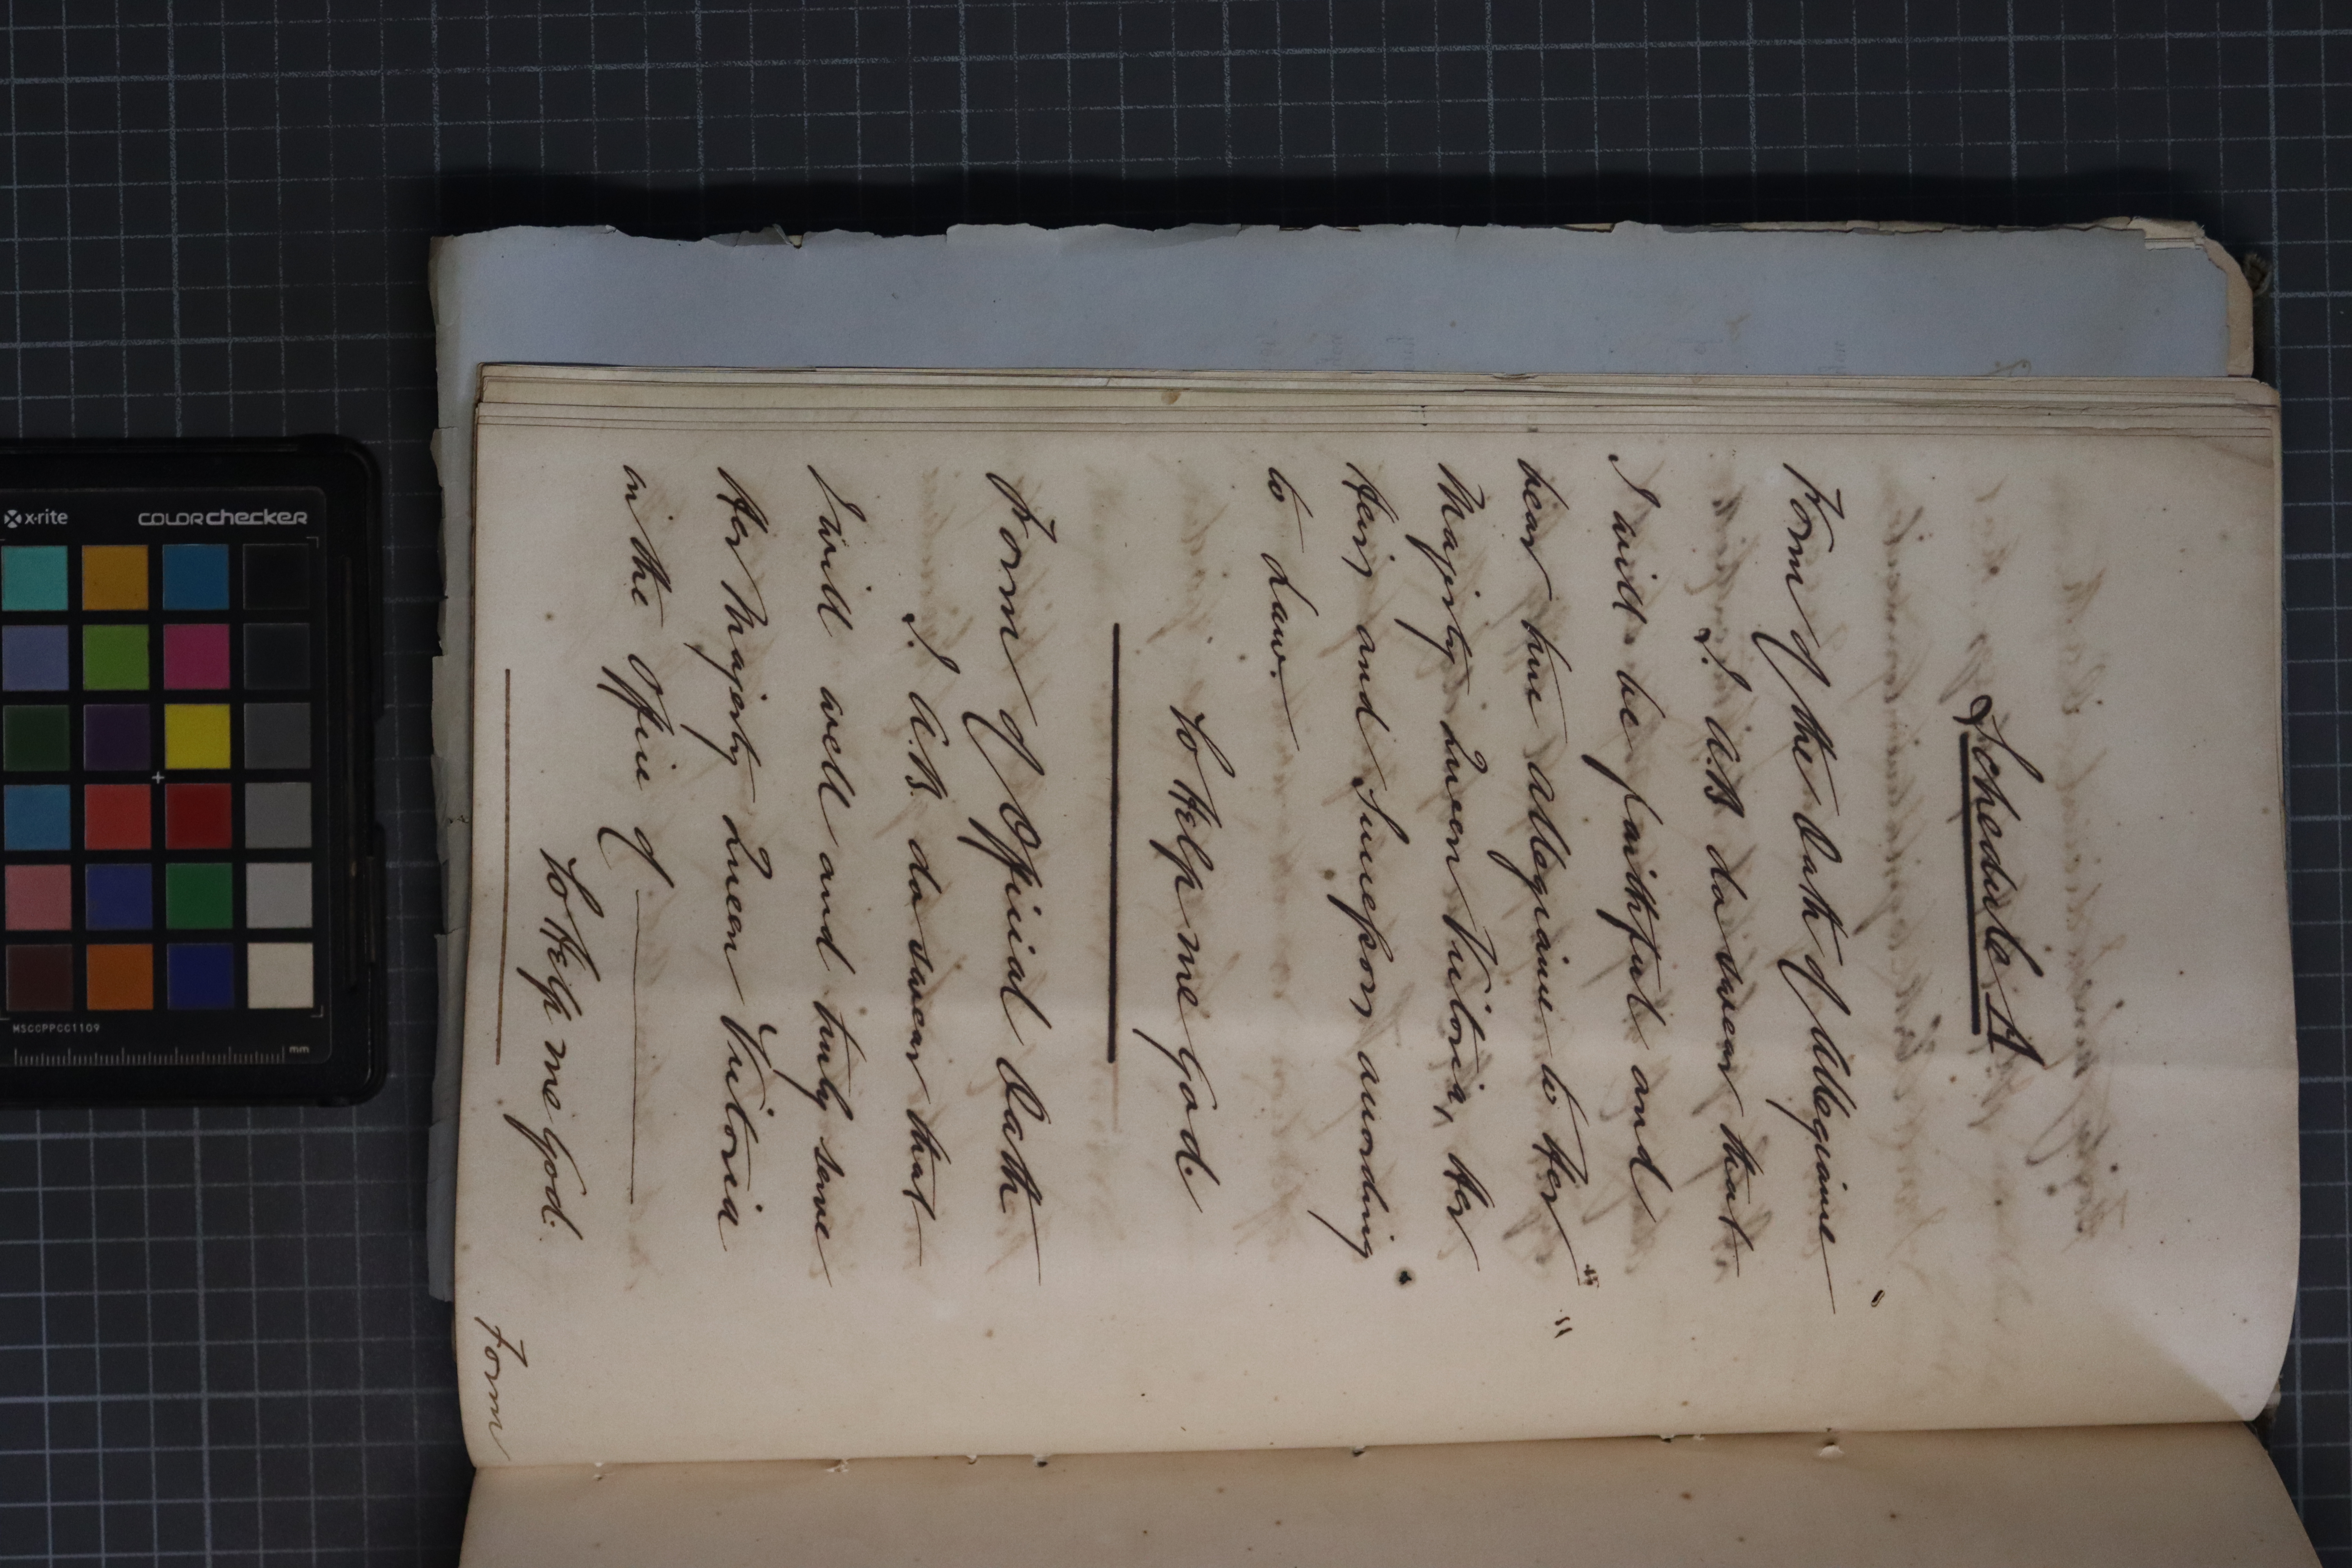 Schedule A
Form of the Oath of Allegiance
I. A.B do swear that
I will be faithful and
bear true allegiance to Her
Majesty Queen Victoria, Her
Heirs and Successors according
to Law.
So Help me God.
Form of Official Oath
I. A.B. do swear that
I will well and truly serve
Her Majesty Queen Victoria
in the office of
So Help me God.
Form
x·rite
colorchecker
MSCCPPCC1109
mm